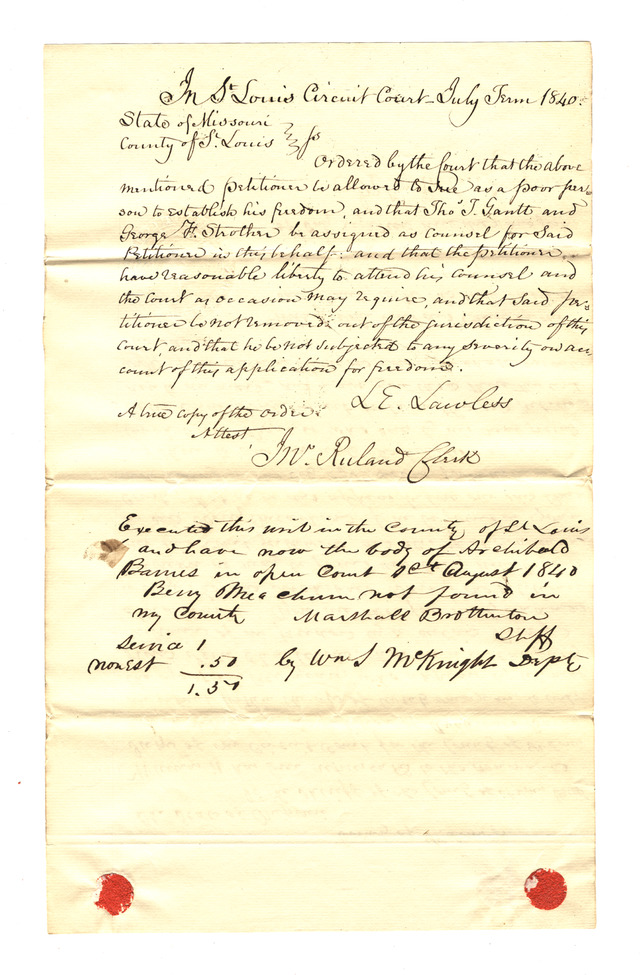 In St Louis Circuit Court July Term 1840.
State of Missouri
County of St. Louis } ss
Ordered by the Court that the above
mentioned petitioner be allowed to sue as a poor per-
son to establish his freedom, and that Thos. T. Gantt and
George F. Strother be assigned as counsel for said
Petitioner in this behalf: and that the petitioner
have reasonable liberty to attend his counsel and
the Court as occasion may require, and that said pe-
titioner be not removed out of the jurisdiction of this
Court, and that he be not subjected to any severity on ac-
count of this application for freedom.
L E. Lawless
A true copy of the order.
Attest
Jno. Ruland Clerk
Executed this writ in the County of St Louis
and have now the body of Archibald
Barnes in open Court August 1840
Berry Meachum not found in
my County Marshall Brotherton
Shff
Service 1
non Est .50 by Wm S McKnight Depty
1.50